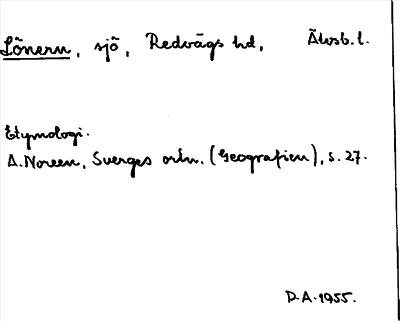 Lönern, sjö, Redvägs hd, Älvsb. l.
Etymologi.
A. Noreen, Sverges ortn. (Geografien), s. 27.
D.A. 1955.